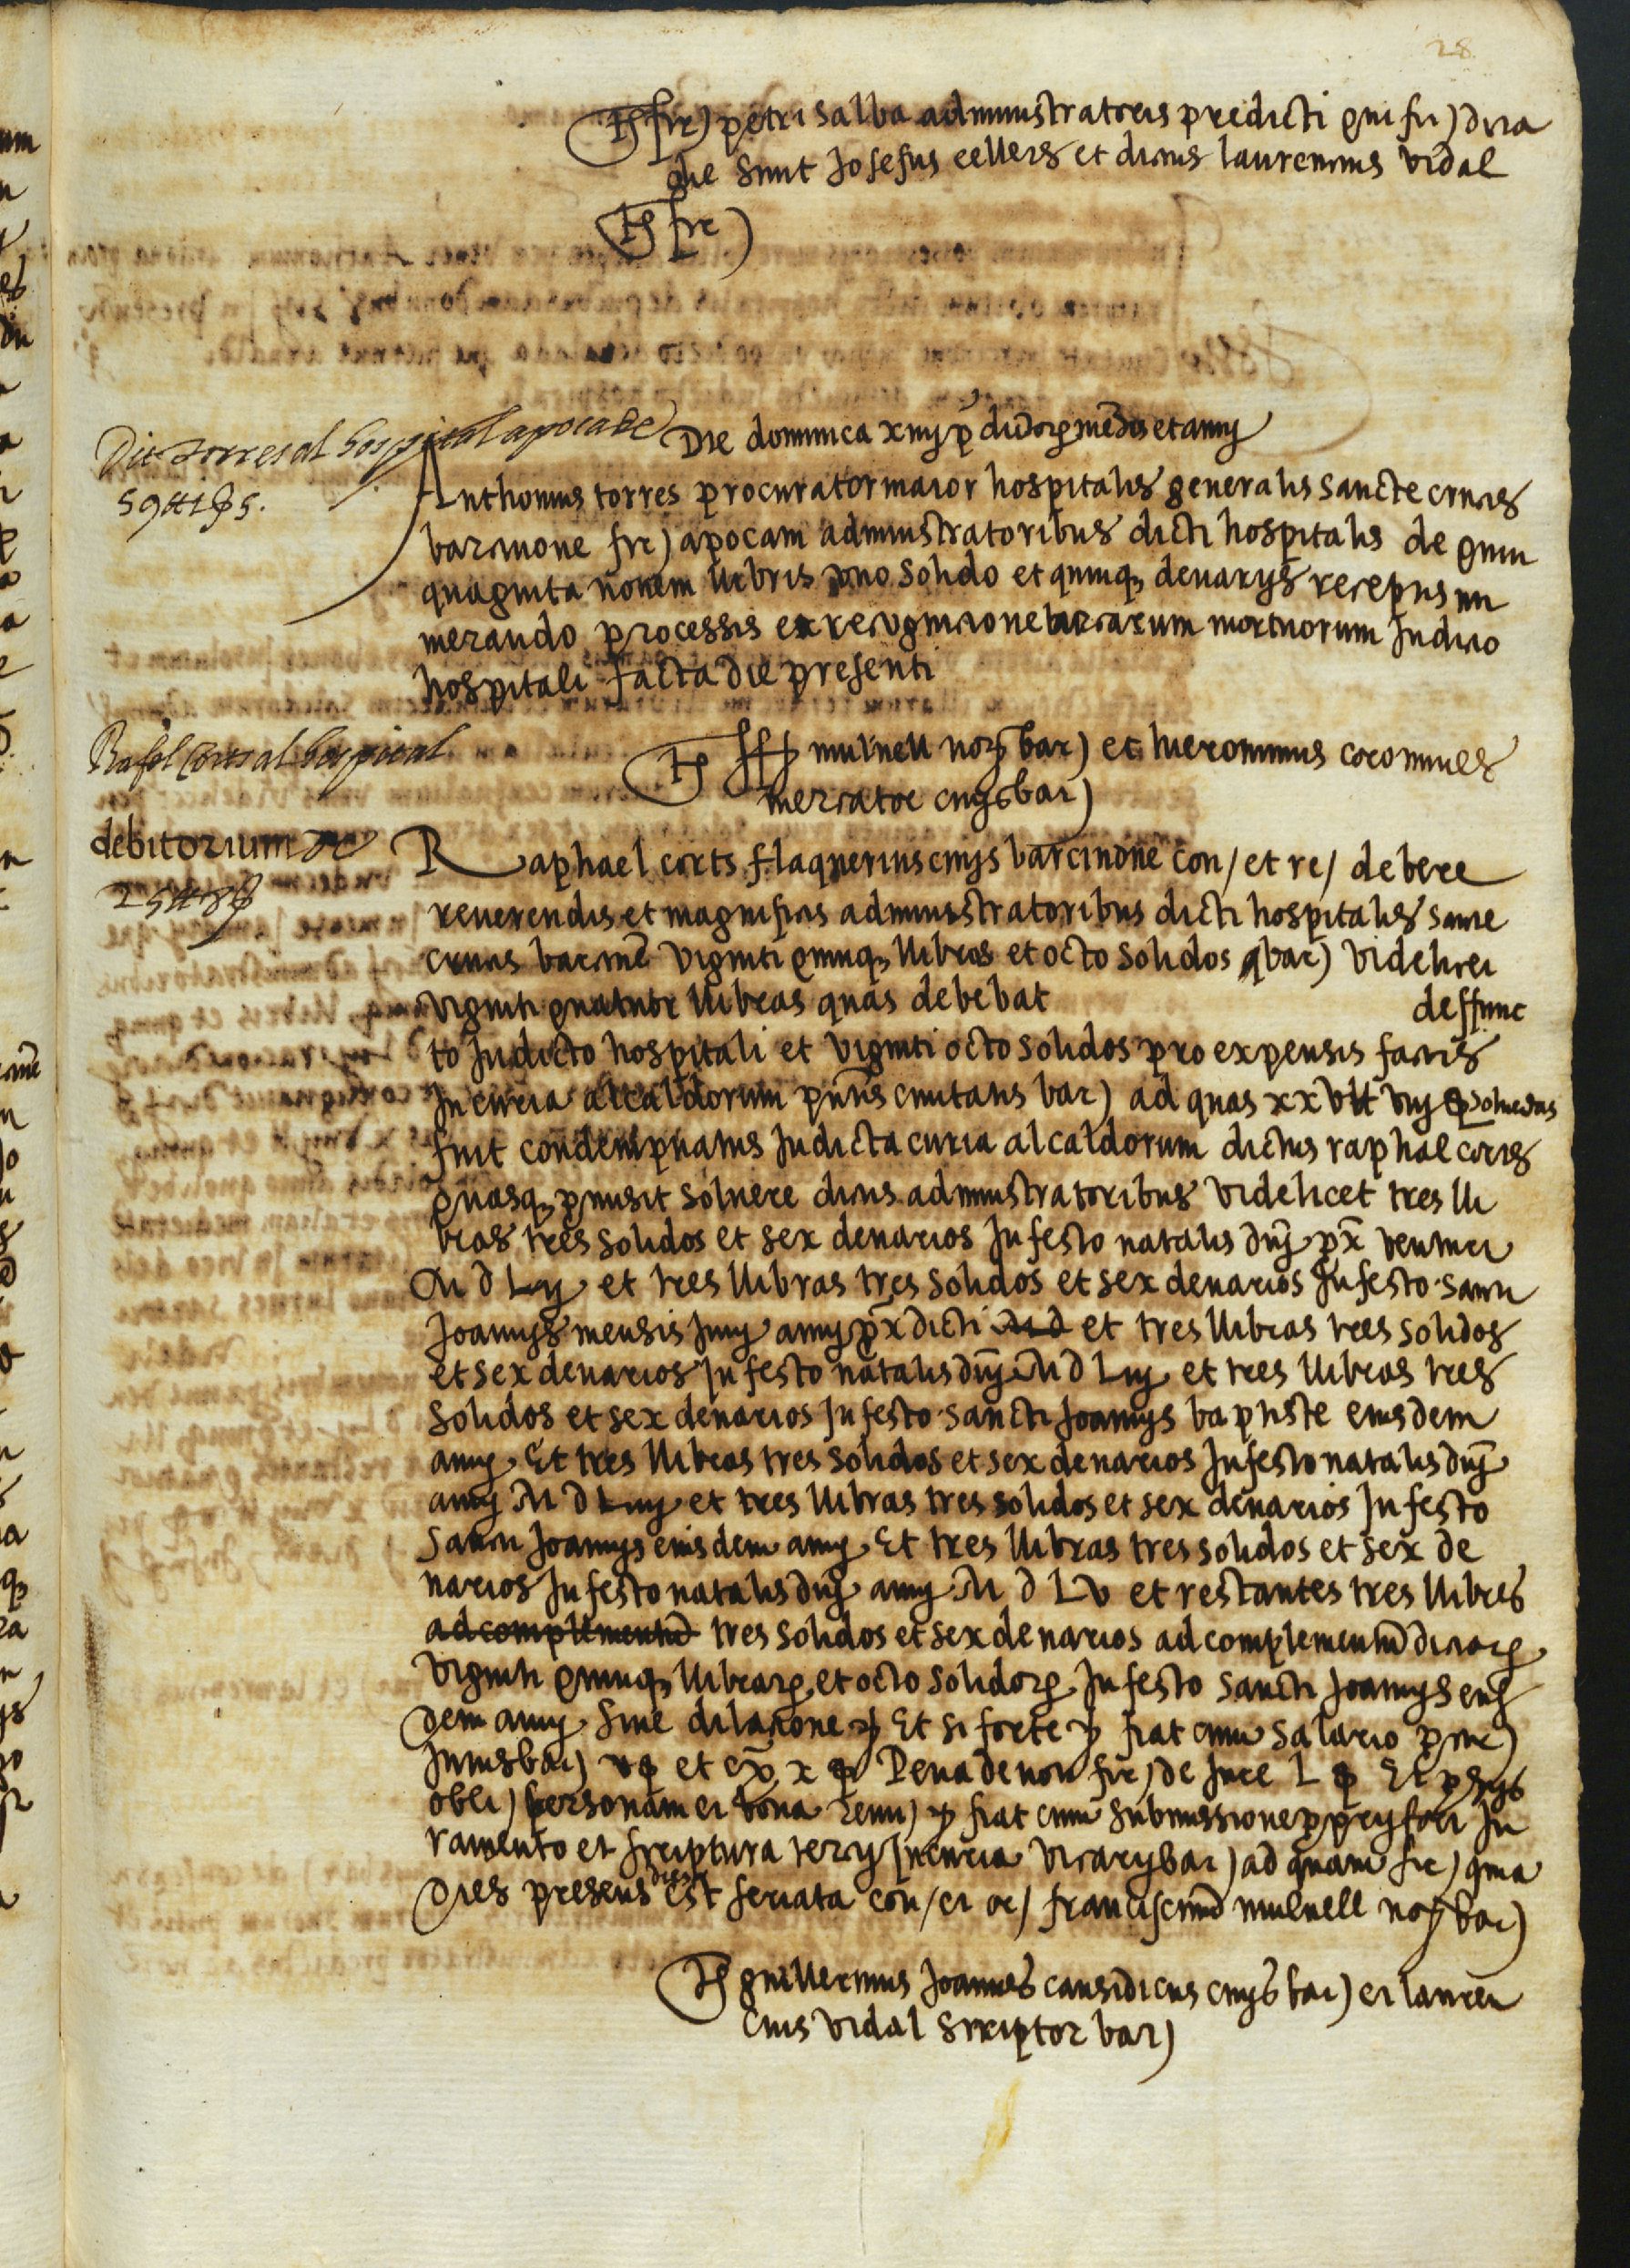 28
Ts fir) petri salba administratoris predicti qui fir) dicta
die Sunt Josefus cellers et dictus laurentius vidal
Ts fir)
Die dominica xiiij p dictorum mensis et anny
Dit torres al hospital apoca de
59 tt 1 s 5.
Anthonius torres procurator maior hospitalis generalis sancte crucis
barcinone fir) apocam administratoribus dicti hospitalis de quin
quaginta novem llibris uno solido et quinq denarijs receptis nu
merando processis ex recognicione mortuorum In dicto
hospitali facta die presenti
Rafel Corts al hospital
Ts mulnell nory bar) et hieronimus coromines
mercator civys bar)
debitorium de
25 tt 8 s
Raphael corts flaquerius civys barcinone con/ et re/ debere
reverendis et magnificis administratoribus dicti hospitalis sancte
crucis barcinone viginti quinq llibras et octo solidos bar) videlicet
viginti quatuor llibras quas debebat deffunc
to In dicto hospitali et viginti octo solidos pro expensis factis
In curia alcaldorum pntis civitatis bar) ad quas xxv tt viij s solvendas
fuit condempnatus In dicta curia alcaldorum dictus raphael corts
quasq pmisit solvere dictis administratoribus videlicet tres lli
bras tres solidos et sex denarios In festo natalis dnj px venturi
M d Lij et tres llibras tres solidos et sex denarios In festo sancti
Joannys mensis Juny anny px dicti M d et tres llibras tres solidos
et sex denarios In festo natalis dnj M d Liij et tres llibras tres
solidos et sex denarios In festo sancti Joannys baptiste eiusdem
anny. Et tres llibras tres solidos et sex denarios In festo natalis dnj
anny M d Liiij et tres llibras tres solidos et sex denarios In festo
sancti Joannys eiusdem anny. Et tres llibras tres solidos et sex de
narios In festo natalis dnj anny M d Lv et restantes tres llibres
ad complementum tres solidos et sex denarios ad complementum dictarum
viginti quinq llibrarum et octo solidorum In festo sancti Joannys eius
dem anny. sine dilacione Et si forte fiat cum salario
Intus bar) et x Pena de non fir) de Jure L Et
obli) personam et bona fiat cum submissione proprij fori Ju
ramento et scriptura tercij In curia vicarij bar) ad quam fir) quia
dies presens est feriata con/ et re/ franciscum mulnell bar)
Ts guillermus Joannes causidicus civys bar) et lauren
cius vidal scriptor bar)